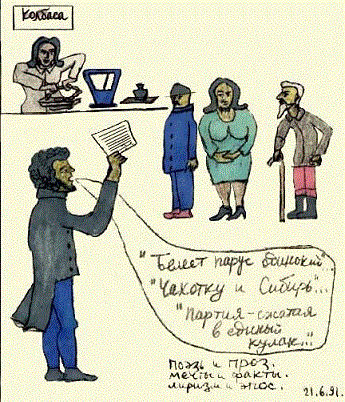 Колбаса
"Белеет парус одинокий"...
"Чахотку и Сибирь"...
"Партия-сжатая
в единый
кулак..."
Поэзь и проз.
мечты и факты.
лиризм и эпос.
21.6.91.